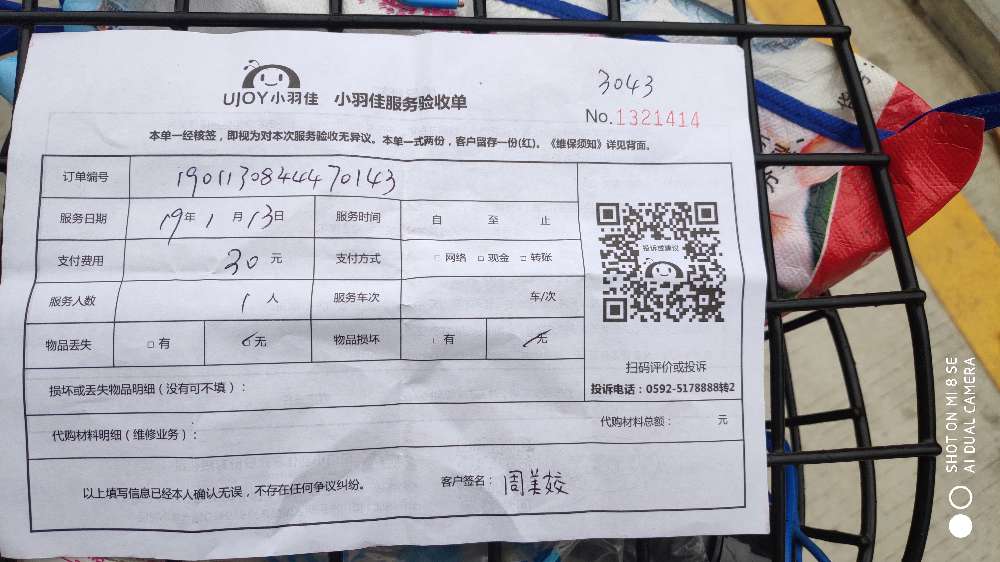 3043
UJOY小羽佳 小羽佳服务验收单
No.1321414
本单一经核签，即视为对本次服务验收无异议。本单一式两份，客户留存一份(红)。《维保须知》详见背面。
订单编号 19011308444470143
服务日期 19年1月13日 服务时间 自 至 止
支付费用 30元 支付方式 □网络 □现金 □转账
服务人数 1人 服务车次 车/次
物品丢失 □有 无 物品损坏 □有 无
投诉或建议
扫码评价或投诉
投诉电话：0592-5178888转2
损坏或丢失物品明细（没有可不填）：
代购材料明细（维修业务）： 代购材料总额： 元
以上填写信息已经本人确认无误，不存在任何争议纠纷。 客户签名：周美姣
SHOT ON MI 8 SE
AI DUAL CAMERA